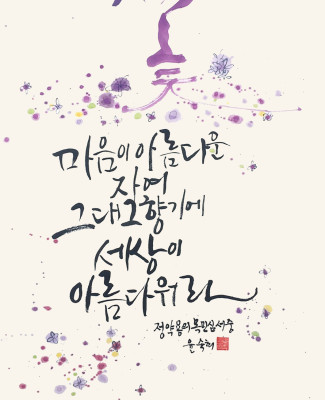 美
마음이 아름다운
자여
그대 그 향기에
세상이
아름다워라
정약용의 목민심서중